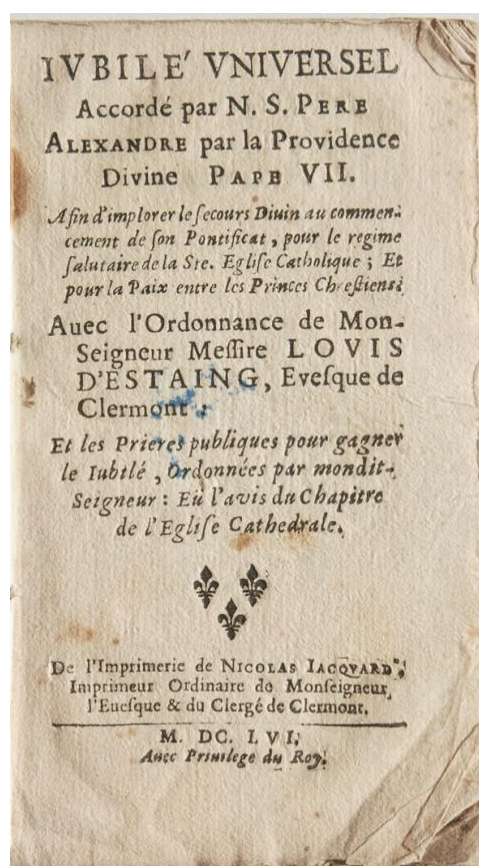 IVBILE' VNIVERSEL
Accordé par N. S. PERE
ALEXANDRE par la Providence
Divine PAPE VII.
Afin d'implorer le ſecours Diuin au commen-
cement de ſon Pontificat, pour le regime
ſalutaire de la Ste. Egliſe Catholique ; Et
pour la Paix entre les Princes Chreſtiens;
Auec l'Ordonnance de Mon-
Seigneur Meſſire LOVIS
D'ESTAING, Eveſque de
Clermont :
Et les Prieres publiques pour gagner
le Iubilé, Ordonnées par mondit-
Seigneur : Eü l'avis du Chapitre
de l'Egliſe Cathedrale.
De l'Imprimerie de NICOLAS IACQVARD,
Imprimeur Ordinaire de Monſeigneur
l'Eueſque & du Clergé de Clermont.
M. DC. LVI.
Auec Priuilege du Roy.